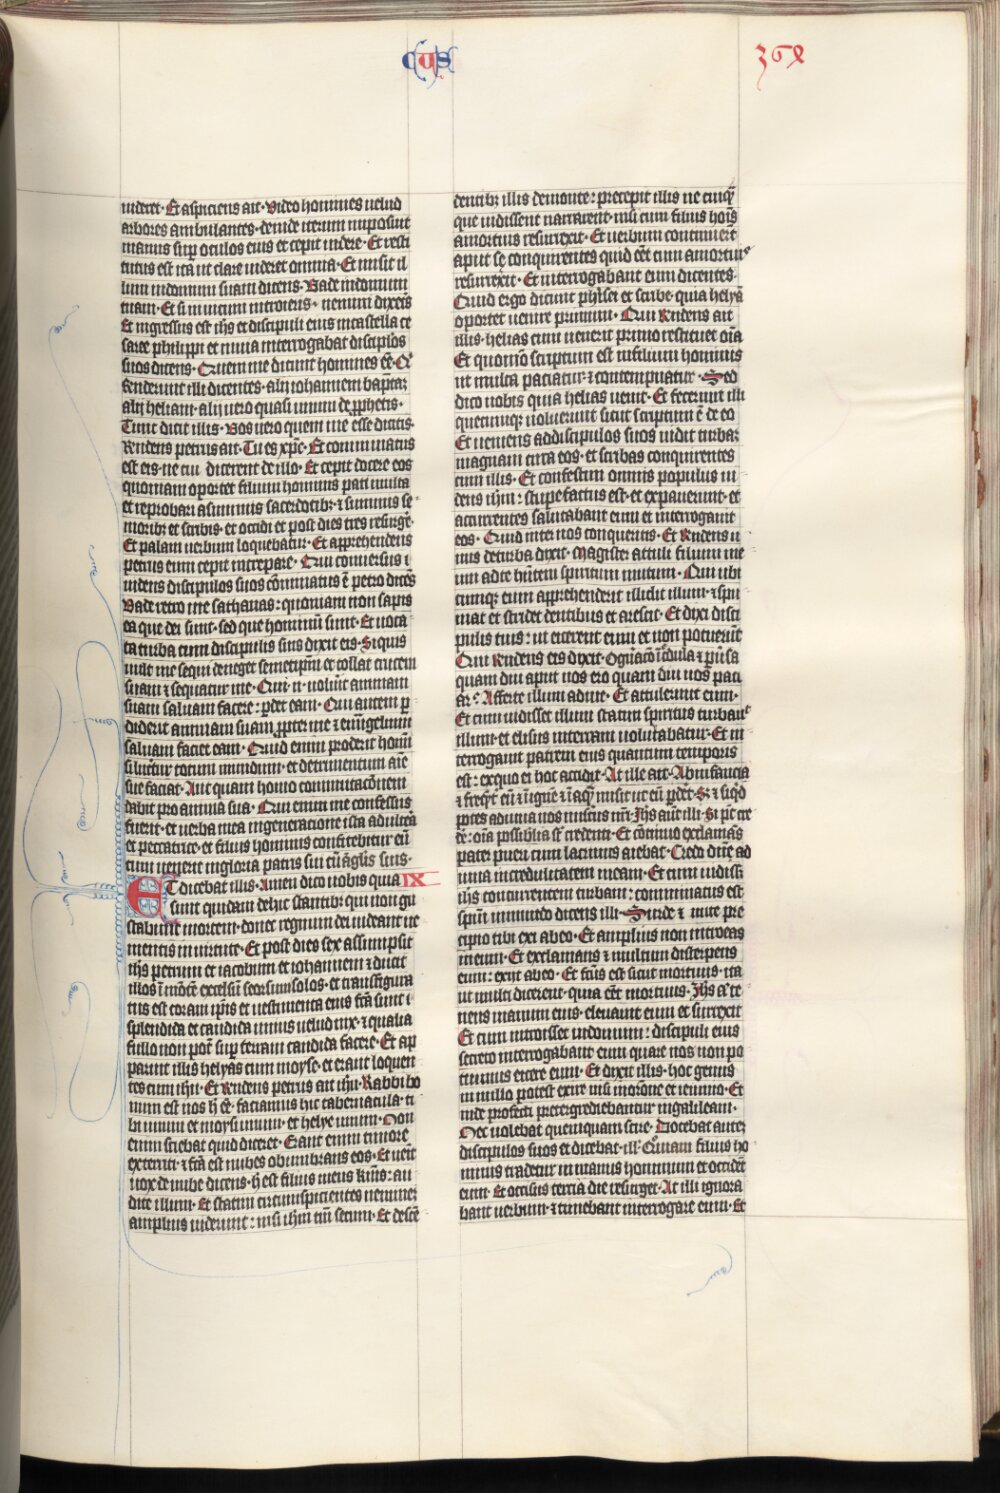 cus
368
uideret · Et aspiciens ait · Video homines uelud
arbores ambulantes · deinde iterum imposuit
manus sup̱ oculos eius et cepit uidere · Et resti
tutus est ita ut clare uideret omnia · Et misit il
lum in domum suam dicens · Vade in domum
tuam · Et si in uicum introieris · nemini dixeris
Et ingressus est ih̄s et discipuli eius in castella ce
saree philippi et in uia interrogabat disciplōs
suos dicens · Quem me dicunt homines eē · Q̄
ſenderunt illi dicentes · alij iohannem bap̄tam
alij heliam · alij uero quasi unum de ꝓphetis ·
Tunc dicit illis · Vos uero quem me esse dicitis ·
R̄ndens petrus ait · Tu es xp̄c · Et comminatus
est eis · ne cui dicerent de illo · Et cepit docere eos
quoniam oportet filium hominis pati multa
et reprobari a summis sacerdotibꝫ · ⁊ summis se
nioribꝫ et scribis · et occidi et post dies tres resurge
Et palam uerbum loquebatur · Et apprehendens
petrus eum cepit increpare · Qui conuersus ⁊
uidens discipulos suos cōminatus ē petro dicēs
Vade retro me sathanas : quoniam non sapis
ea que dei sunt · sed que hominū sunt · Et uoca
ta turba cum discipulis suis dixit eis · Siquis
uult me sequi deneget semetip̄m et tollat crucem
suam ⁊ sequatur me · Qui · n · uoluīt animam
suam saluam facere : ꝑdet eam · Qui autem ꝑ
diderit animam suam ꝓpter me ⁊ euu̅gelium
saluam faciet eam · Quid enim proderit homī
si lucr̄tur totum mundum · et detrimentum aīe
sue faciat · Aut quam homo commutacōnem
dabit pro anima sua · Qui enim me confessus
fuerit · et uerba mea in generacione ista adultera
et peccatrice · et filius hominis confitebitur eū
cum uenerit in gloria patris sui cū āgl̄is suis ·
ET dicebat illis · Amen dico uobis quia IX
sunt quidam de hic stantibꝫ qui non gu
stabunt mortem · donec regnum dei uideant ue
nientis in uirtute · Et post dies sex assumpsit
ih̄s petrum et iacobum et iohannem ⁊ ducit
illos ī mōte excelsū seorsum solos · et transfigura
tus est coram ip̄is et uestimenta eius fc̄a sunt ·
splendida et candida nimis uelud nix · ⁊ qualia
fullo non pōt sup̱ terram candida facere · Et ap
paruit illis helyas cum moyse · et erant loquen
tes cum ih̄u · Et R̄ndens petrus ait ih̄u · Rabbi bo
num est nos h̄ eē · faciamus hic tabernacula · ti
bi unum et moysi unum · et helye unum · Non
enim sciebat quid diceret · Erant enim timore
exterriti · ⁊ fc̄a est nubes obumbrans eos · Et uenit
uox de nube dicens · h̄ est filius meus kīm̄s : au
dite illum · Et statim circumspicientes neminē
amplius uiderunt : nisi ih̄m tm̄ secum · Et desce
dentibꝫ illis de monte : precepit illis ne cuiq̄
que uidissent narrarent · nisi cum filius hoīs
a mortuis resurrexit · Et uerbum continuerūt
aput se conquirentes quid eēt cum a mortuis
resurrexit · Et interrogabant eum dicentes ·
Quid ergo dicunt ph̄isei et scribe · quia helyā
oportet uenire primum · Qui R̄ndens ait
illis · helias cum uenerit primo restituet oīa
Et quomō scriptum est in filium hominis
ut multa paciatur ⁊ contempnatur · Sed
dico uobis quia helias uenit · Et fecerunt illi
quecunqꝫ uoluerunt sicut scriptum ē de eo
Et ueniens ad discipulos suos uidit turbaꝫ
magnam circa eos · et scribas conquirentes
cum illis · Et confestim omnis populus ui
dens ih̄m : stupefactus est · et expauerunt · et
accurrentes salutabant eum et interrogauit
eos · Quid inter uos conqueritis · Et R̄ndens u
nus de turba dixit · Magister attuli filium me
um ad te hn̄tem spiritum mutum · Qui ubi
cunqꝫ eum apprehenderit illidit illum · ⁊ spu
mat et stridet dentibus et arescit · Et dixi disci
pulis tuis : ut eicerent eum et non potuerūt
Qui R̄ndens eis dixit · O gn̄acō īcredula
quam diu aput uos ero quam diu uos paci
ar · Afferte illum ad me · Et attulerunt eum ·
Et cum uidisset illum statim spiritus turbauit
illum · et elisus in terram uolutabatur · Et in
terrogauit patrem eius quantum temporis
est : ex quo ei hoc accidit · At ille ait · Ab infancia
⁊ freq̄nt̄ eū ī ignē ⁊ ī aq̄ misit ut eū ꝑdēt · S ⁊ siqd̄
potes adiuua nos misertus nr̄i · Ih̄s aūt illi · Si pōt cre
dē : oīa possiblia sī credenti · Et cōtinuo exclamās
pater pueri cum lacrimis aiebat · Credo dn̄e ad
iuua incredulitatem meam · Et cum uidiss̄
ih̄s concurrentem turbam : comminatus est
spūi inmundo dicens illi · Surde ⁊ mute pre
cipio tibi exi ab eo · Et amplius non introeas
in eum · Et exclamans ⁊ multum discerpens
eum : exijt ab eo · Et fc̄us est sicut mortuus · ita
ut multi dicerent · quia eēt mortuus · Ih̄s aūt te
nens manum eius · eleuauit eum et surrexit
Et cum introisset in domum : discipuli eius
secreto interrogabant eum quare nos non po
tuimus eicere eum · Et dixit illis · hoc genus
in nullo potest exire nisi in orōne et ieiunio · Et
inde profecti pretergrediebantur in galileam ·
Nec uolebat quenquam scire · Docebat auteꝫ
discipulos suos et dicebat · ill̄ · Qm̄iam filius ho
minis tradetur in manus hominum et occidēt
eum · Et occisus tercia die resurget · At illi ignora
bant uerbum · ⁊ timebant interrogare eum · Et